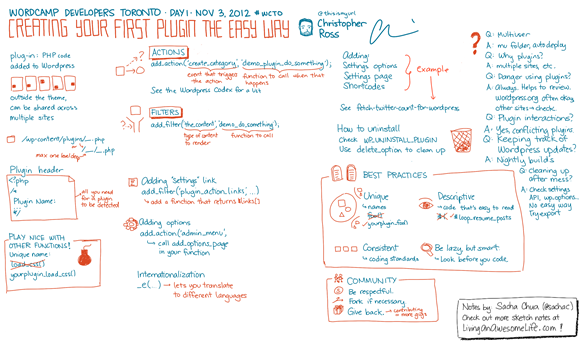 WORDCAMP DEVELOPERS TORONTO · DAY 1 · NOV 3, 2012 #WCTO
CREATING YOUR FIRST PLUGIN THE EASY WAY
@thisismyurl
Christopher
Ross
plug-in: PHP code
added to WordPress
outside the theme,
can be shared across
multiple sites
/wp-content/plugins/__.php
/__.php
max one level deep
Plugin header
<?php
/*
Plugin Name:
*/
all you need
for a plugin
to be detected
PLAY NICE WITH
OTHER FUNCTIONS!
Unique name:
load_css()
yourplugin_load_css()
ACTIONS
add_action('create_category', 'demo_plugin_do_something');
event that triggers
the action
function to call when that
happens
See the Wordpress Codex for a list
FILTERS
add_filter('the_content', 'demo_do_something');
type of content
to render
function to call
Adding "Settings" link
add_filter('plugin_action_links', ...)
add a function that returns $links()
Adding options
add_action('admin_menu',
call add_options_page
in your function
Internationalization
_e(...) → lets you translate
to different languages
Adding
Settings options
Settings page
Shortcodes
Example
See fetch-twitter-count-for-wordpress
How to uninstall
Check WP_UNINSTALL_PLUGIN
Use delete_option to clean up
BEST PRACTICES
Unique
names
foo()
yourplugin_foo()
Descriptive
code that's easy to read
#loop_resume_posts
Consistent
coding standards
Be lazy, but smart.
Look before you code.
COMMUNITY
Be respectful.
Fork if necessary.
Give back.
contributing
Q: Multiuser
A: mu folder, autodeploy
Q: Why plugins?
A: multiple sites, etc.
Q: Danger using plugins?
A: Always. Helps to review.
wordpress.org often okay,
other sites → check.
Q: Plugin interactions?
A: Yes, conflicting plugins.
Q: Keeping track of
Wordpress updates?
A: Nightly builds
Q: Cleaning up
after mess?
A: Check settings
API, wp_options...
No easy way
try export
Notes by Sacha Chua (@sachac)
Check out more sketch notes at
LivingAnAwesomeLife.com !